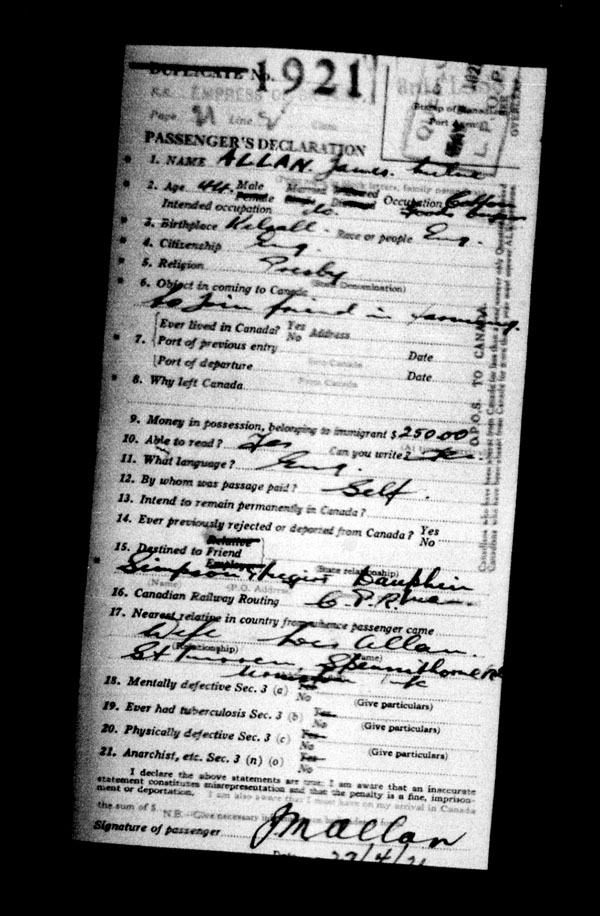 DUPLICATE No. 1921
S.S. EMPRESS OF
Page 21 Line 2 Class
PASSENGER'S DECLARATION
1. NAME ALLAN. James.
2. Age 44. Male Female Married Single Widowed Divorced Occupation Cotton Goods Buyer
Intended occupation do.
3. Birthplace Kelsall. Race or people Eng.
4. Citizenship Eng.
5. Religion Presby
(State Denomination)
6. Object in coming to Canada
to Join friend in farming.
7. Ever lived in Canada? Yes No Address
Port of previous entry Date
Port of departure Date
From Canada
8. Why left Canada
9. Money in possession, belonging to immigrant $ 250.00
10. Able to read? Yes Can you write?
11. What language? Eng.
12. By whom was passage paid? Self.
13. Intend to remain permanently in Canada?
14. Ever previously rejected or deported from Canada? Yes No
15. Destined to Relative Friend Employer
(State relationship)
Simpson Dauphin
(Name) (P.O. Address)
16. Canadian Railway Routing C.P.R. Man
17. Nearest relative in country from whence passenger came
Wife Allan.
(Relationship) (Name)
18. Mentally defective Sec. 3 (a) Yes No (Give particulars)
19. Ever had tuberculosis Sec. 3 (b) Yes No (Give particulars)
20. Physically defective Sec. 3 (c) Yes No (Give particulars)
21. Anarchist, etc. Sec. 3 (n) (o) Yes No
I declare the above statements are true; I am aware that an inaccurate
statement constitutes misrepresentation and that the penalty is a fine, imprison-
ment or deportation. I am also aware that I must have on my arrival in Canada
the sum of $
N.B.—Give necessary
Signature of passenger JMAllan
22/4/21
O.P.O.S. TO CANADA.
OVERLEAF